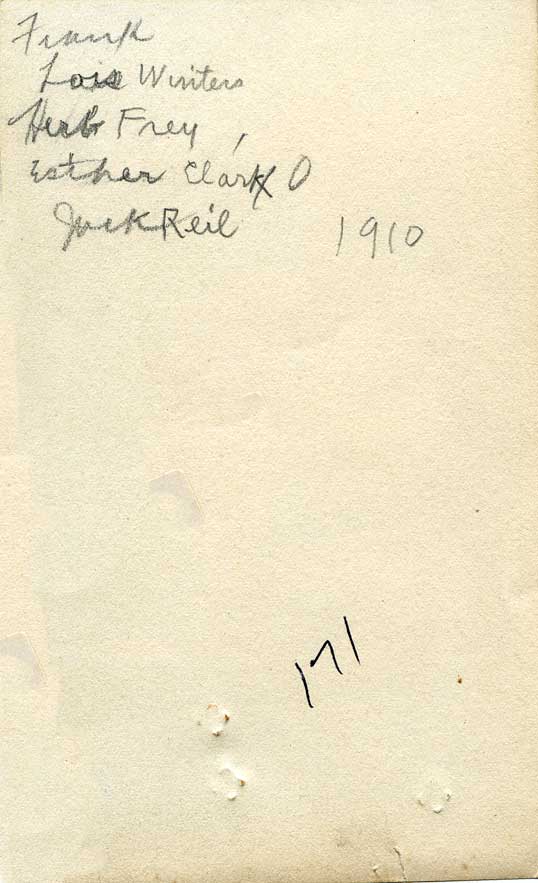 Frank
Lois Winters
Herb Frey,
Esther Clark O
Jack Reil
1910
171